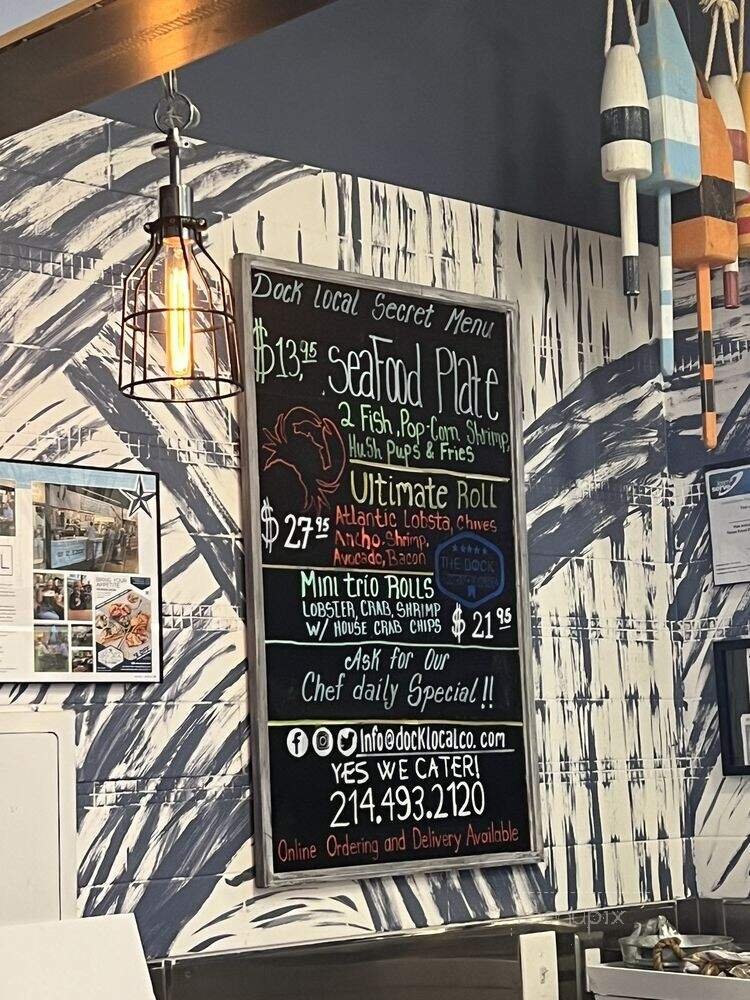 Dock Local Secret Menu
$13.95 Seafood Plate
2 Fish, Pop-Corn Shrimp,
Hush Pups & Fries
Ultimate Roll
$27.95 Atlantic Lobsta, Chives
Ancho-Shrimp,
Avocado, Bacon
THE DOCK
Mini trio Rolls
LOBSTER, CRAB, SHRIMP
W/ HOUSE CRAB CHIPS $21.95
Ask for Our
Chef daily Special!!
Info@docklocalco.com
YES WE CATER!
214.493.2120
Online Ordering and Delivery Available